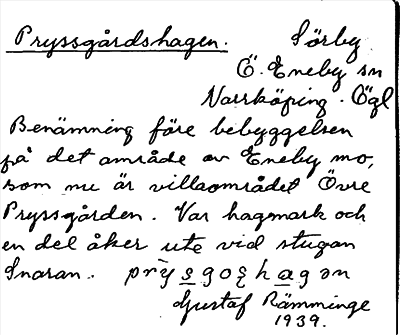 Pryssgårdshagen. Sörby
Ö. Eneby sn
Norrköping. Ögl
Benämning före bebyggelsen
på det område av Eneby mo,
som nu är villaområdet Övre
Pryssgården. Var hagmark och
en del åker ute vid stugan
Snaran.
Gustaf Rämminge
1939.